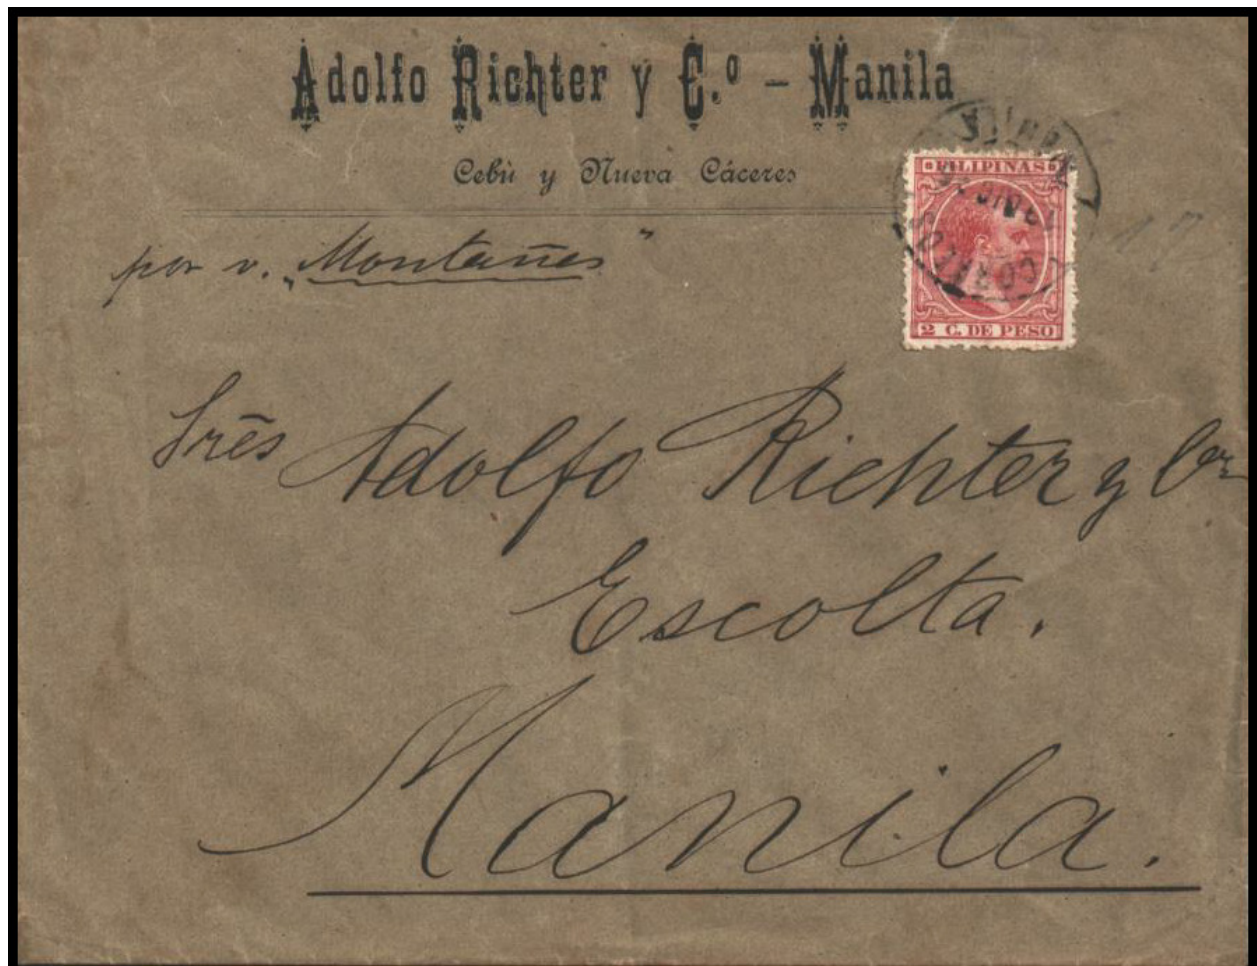 Adolfo Richter y C.º - Manila
Cebù y Nueva Cáceres
FILIPINAS
CORREOS
2 C. DE PESO
por v. „Montañes"
17
Srẽs Adolfo Richter y Cª
Escolta.
Manila.